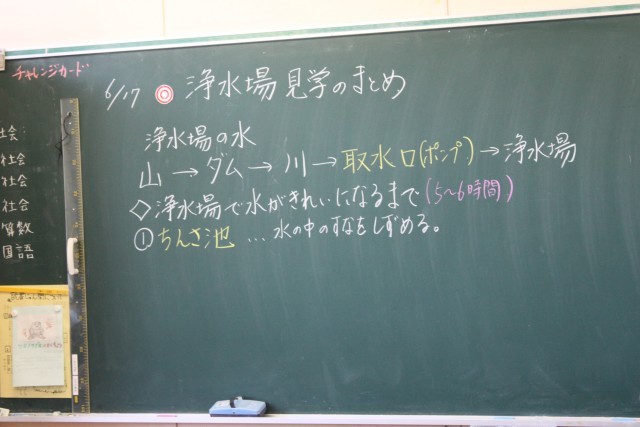 チャレンジカード
6/17 ◎ 浄水場見学のまとめ
浄水場の水
山→ダム→川→取水口(ポンプ)→浄水場
◇浄水場で水がきれいになるまで(5~6時間)
①ちんさ池 …水の中のすなをしずめる。
社会
社会
社会
社会
算数
国語